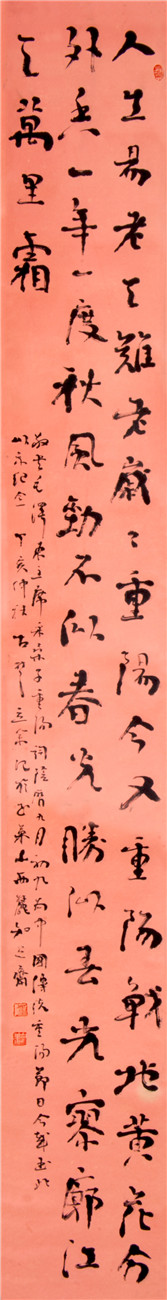 人生易老天难老歲〻重陽今又重陽戰地黃花分
外香一年一度秋風勁不似春光勝似春光寥廓江
天萬里霜
敬書毛澤東主席采桑子重陽詞陰曆九月初九為中國傳統重陽節日今年書此
以示紀念丁亥仲秋